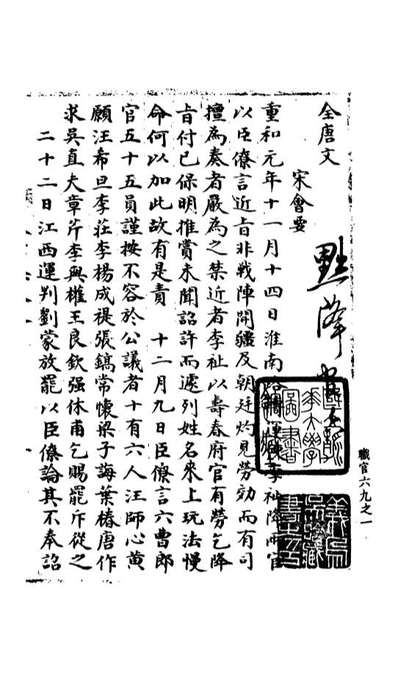 職官六九之一
全唐文
宋會要
黜降
重和元年十一月十四日淮南李祉降兩官
以臣僚言近旨非戰陣開疆及朝廷灼見勞効而有司
擅為奏者嚴為之禁近者李祉以壽春府官有勞乞降
旨付已保明推賞未聞詔許而遽列姓名來上玩法慢
命何以加此故有是責　十二月九日臣僚言六曹郎
官五十五員謹按不容於公議者十有六人汪師心黃
願汪希旦李莊李楊成禔張鎬常懷梁子誨葉椿唐作
求吳直夫章芹李與權王良欽強休甫乞賜罷斥從之
二十二日江西運判劉蒙放罷以臣僚論其不奉詔